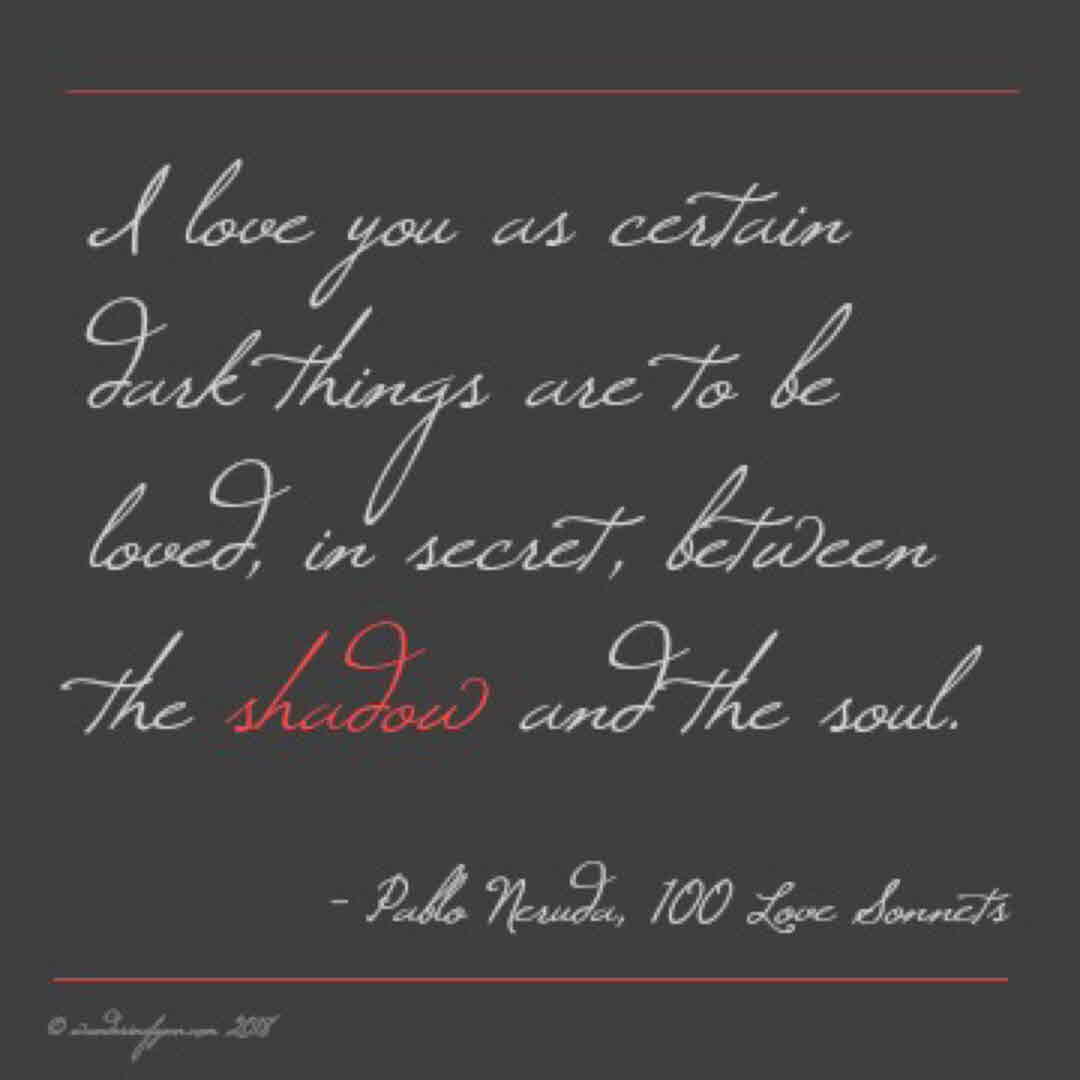 I love you as certain
dark things are to be
loved, in secret, between
the shadow and the soul.
- Pablo Neruda, 100 Love Sonnets
©